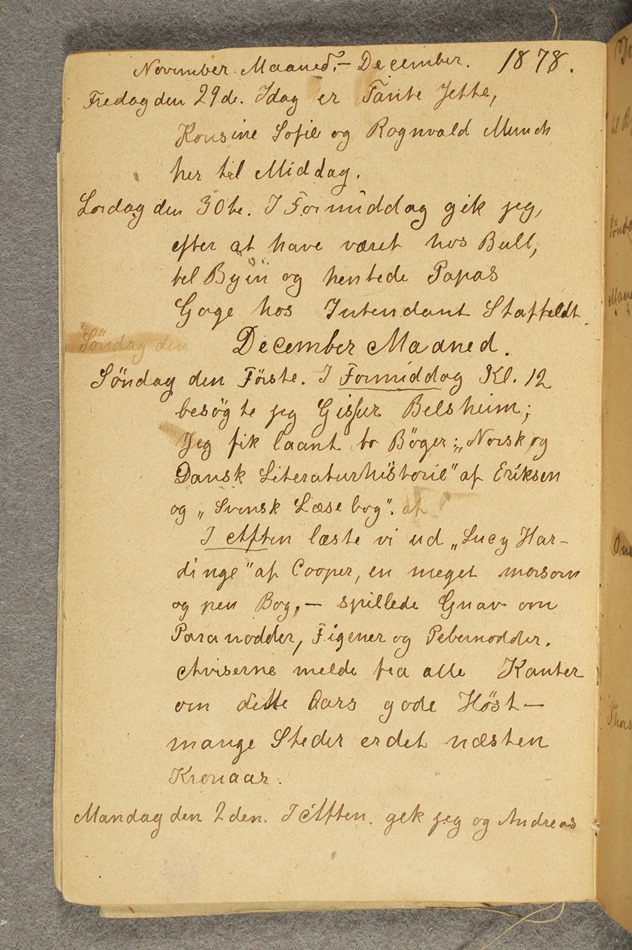 November Maaned,- December. 1878.
Fredag den 29de. Idag er Tante Jette,
Kousine Sofie og Ragnvald Munch
her til Middag.
Lördag den 30te. I Formiddag gik jeg,
efter at have været hos Bull,
til Byen og hentede Papas
Gage hos Intendant Staffeldt.
Söndag den
December Maaned.
Söndag den Förste. I Formiddag Kl. 12
besögte jeg Gissur Belsheim;
Jeg fik laant to Böger: „Norsk og
Dansk Literaturhistorie" af Eriksen
og „Svensk Læsebog". af
I Aften læste vi ud „Lucy Har-
dinge" af Cooper, en meget morsom
og pen Bog, — spillede Gnav om
Paranödder, Figener og Pebernödder.
Aviserne melde fra alle Kanter
om dette Aars gode Höst —
mange Steder er det næsten
Kronaar.
Mandag den 2den. I Aften gik jeg og Andreas